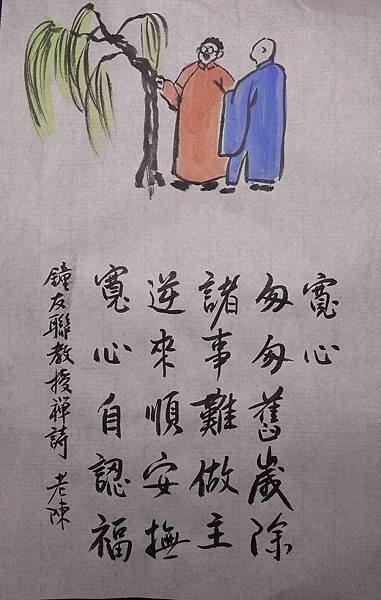 寬心
匆匆舊歲除
諸事難做主
逆來順安撫
寬心自認福
鐘友聯教授禪詩 老陳